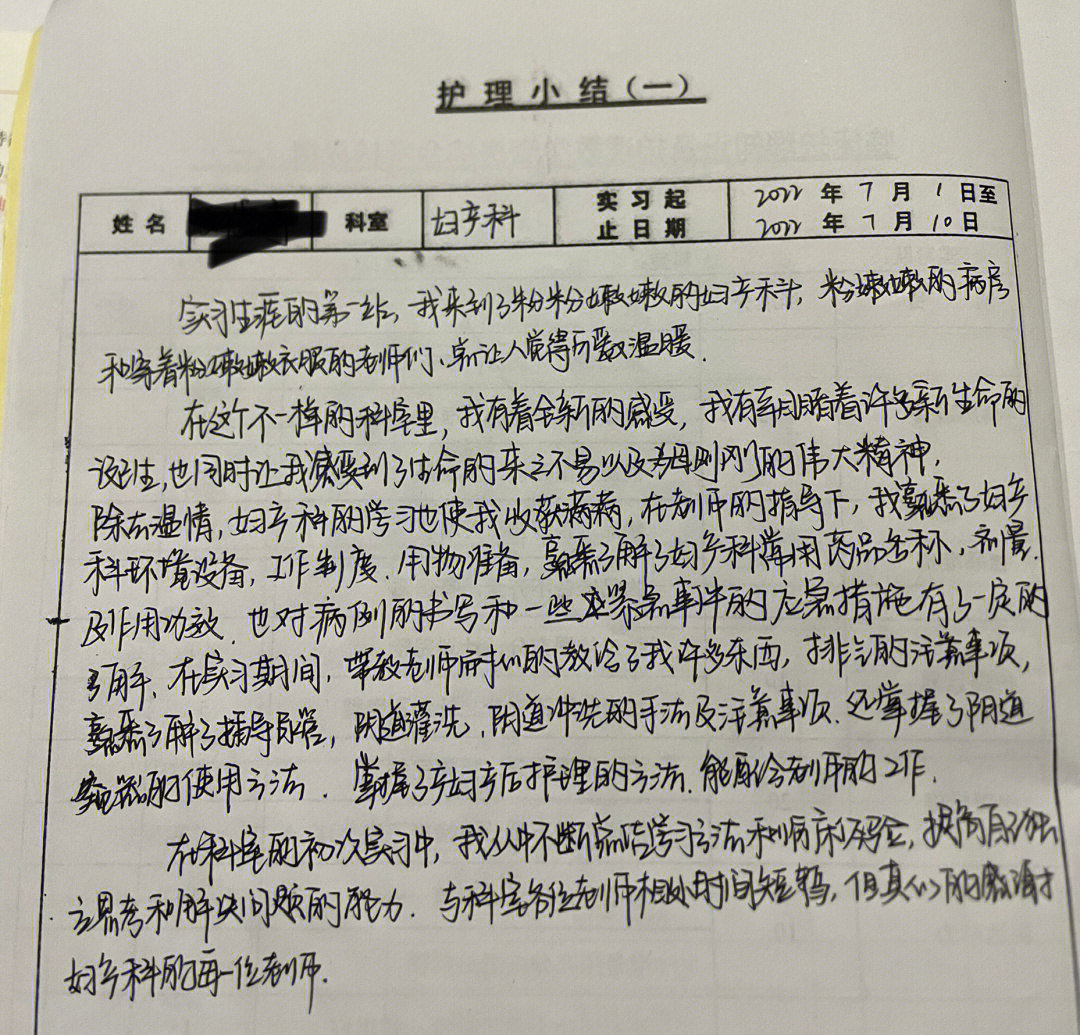 护理小结（一）
姓名 科室 妇产科 实习起止日期 2022年7月1日至2022年7月10日
实习生涯的第一站，我来到了粉粉嫩嫩的妇产科，粉嫩嫩的病房
和穿着粉嫩嫩衣服的老师们、就让人觉得万般温暖.
在这个不一样的科室里，我有着全新的感受，我有幸目睹着许多新生命的
诞生，也同时让我感受到了生命的来之不易以及为母则刚的伟大精神.
除去温情，妇产科的学习也使我收获满满，在老师的指导下，我熟悉了妇产
科环境设备，工作制度.用物准备，熟悉了解了妇产科常用药品名称，剂量.
及作用功效.也对病例的书写和一些应紧急事件的应急措施有了一定的
了解.在实习期间，带教老师耐心的教给了我许多东西，排气的注意事项，
熟悉了解了插导尿管，阴道灌洗.阴道冲洗的手法及注意事项.还掌握了阴道
窥器的使用方法.掌握了产妇产后护理的方法.能配合老师的工作.
在科室的初次实习中，我从中不断总结学习方法和临床经验，提高自己独
立思考和解决问题的能力.与科室各位老师相处时间短暂，但真心的感谢
妇产科的每一位老师.